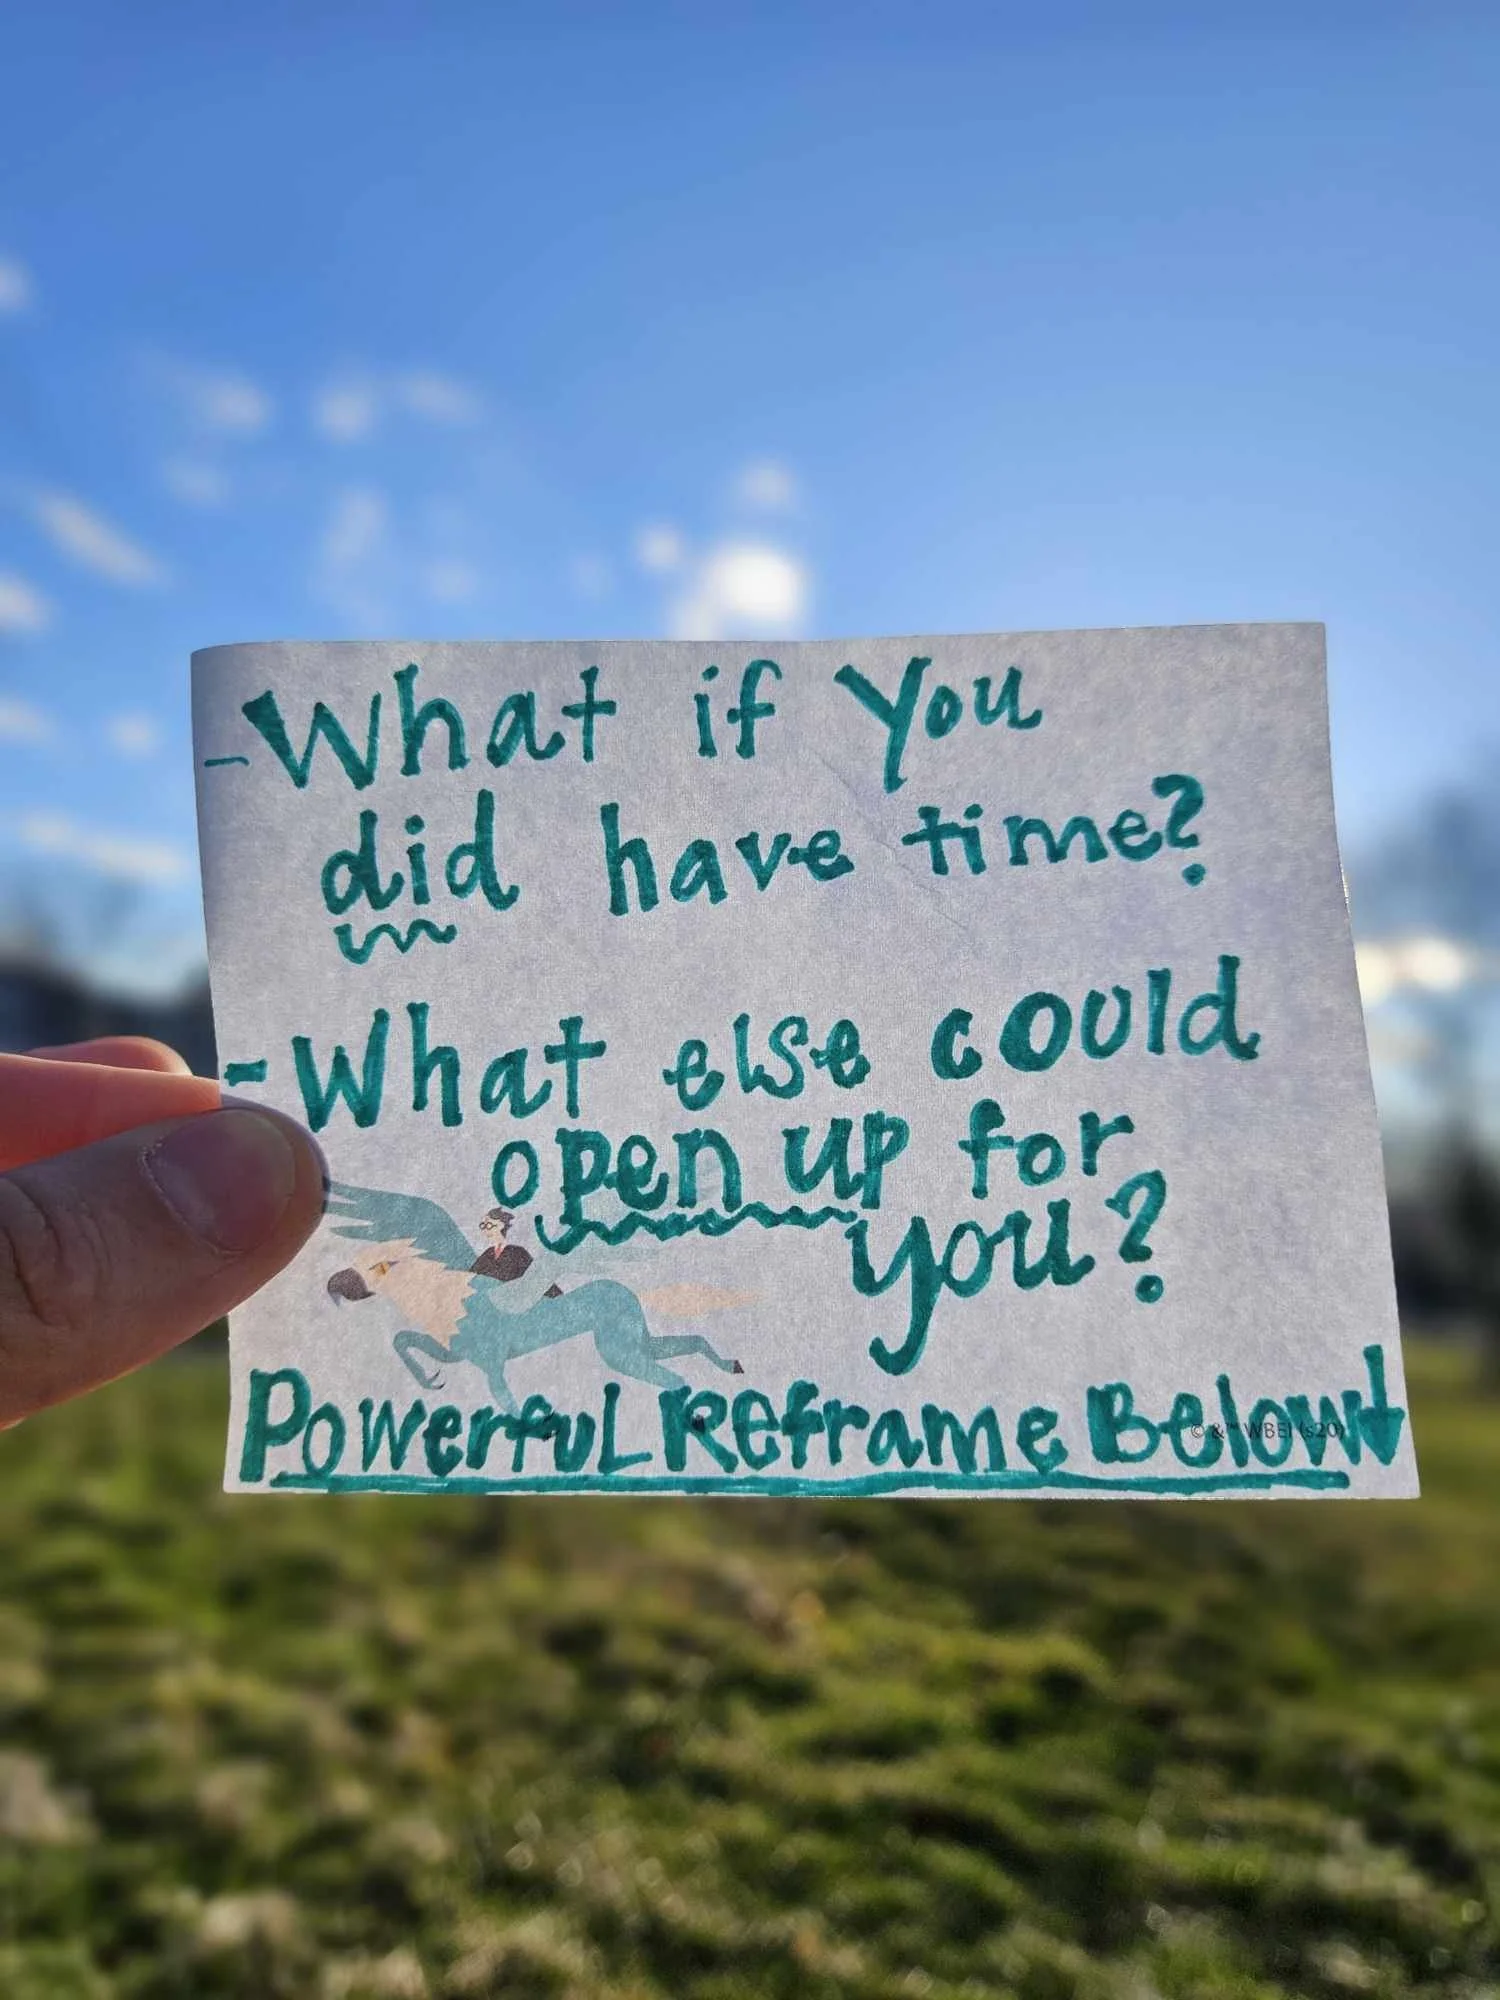 -What if You
did have time?
-What else could
open up for
you?
Powerful Reframe Below↓
© & ™ WBEI (s20)